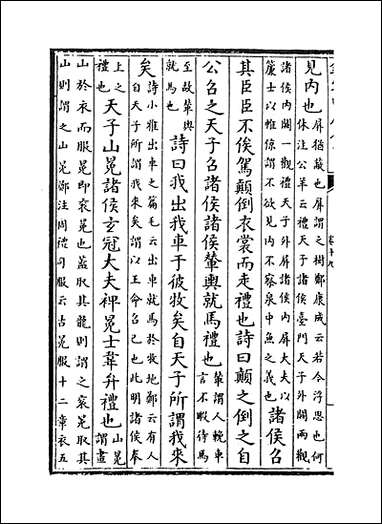 見內也屏猶蔽也屏謂之樹鄭康成云若今浮思也何
休注公羊云禮天子諸侯臺門天子外闕兩觀
諸侯內闕一觀禮天子外屏諸侯內屏大夫以
簾士以帷倞謂不欲見內不察泉中魚之義也諸侯召
其臣臣不俟駕顛倒衣裳而走禮也詩曰顛之倒之自
公召之天子召諸侯諸侯輦輿就馬禮也輦謂人輓車
言不暇待馬
至故輦輿
就馬也詩曰我出我車于彼牧矣自天子所謂我來
矣詩小雅出車之篇毛云出車就馬於牧地鄭云有人
自天子所謂我來矣謂以王命召已也此明諸侯奉
上之
天子山冕諸侯玄冠大夫裨冕士韋升禮也山冕
謂畫
山於衣而服冕即袞冕也蓋取其龍則謂之袞冕取其
山則謂之山冕鄭注周禮司服云古冕服十二章衣五